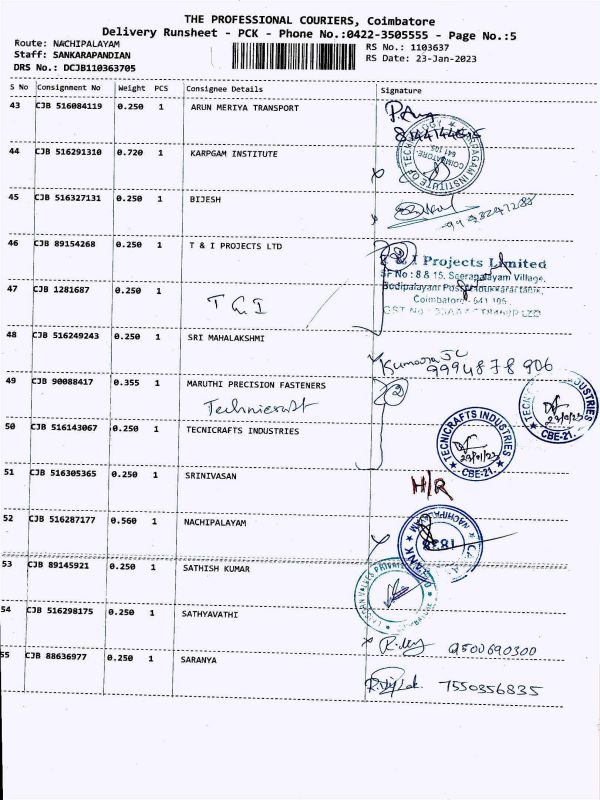 THE PROFESSIONAL COURIERS, Coimbatore
Delivery Runsheet - PCK - Phone No.:0422-3505555 - Page No.:5
Route: NACHIPALAYAM
RS No.: 1103637
Staff: SANKARAPANDIAN
RS Date: 23-Jan-2023
DRS No.: DCJB110363705
S No Consignment No Weight PCS Consignee Details Signature
43 CJB 516084119 0.250 1 ARUN MERIYA TRANSPORT
44 CJB 516291310 0.720 1 KARPGAM INSTITUTE
INSTITUTE OF TECHNOLOGY
COIMBATORE
641 105
45 CJB 516327131 0.250 1 BIJESH
46 CJB 89154268 0.250 1 T & I PROJECTS LTD
I Projects Limited
SF No : 8 & 15, Seerapalayam Village,
Coimbatore - 641 105
47 CJB 1281687 0.250 1
T & I
48 CJB 516249243 0.250 1 SRI MAHALAKSHMI
9994878906
49 CJB 90088417 0.355 1 MARUTHI PRECISION FASTENERS
2
Technicraft
50 CJB 516143067 0.250 1 TECNICRAFTS INDUSTRIES
TECNICRAFTS INDUSTRIES
CBE-21.
CBE-21.
51 CJB 516305365 0.250 1 SRINIVASAN
H/R
52 CJB 516287177 0.560 1 NACHIPALAYAM
53 CJB 89145921 0.250 1 SATHISH KUMAR
54 CJB 516298175 0.250 1 SATHYAVATHI
9500690300
55 CJB 88636977 0.250 1 SARANYA
7550356835